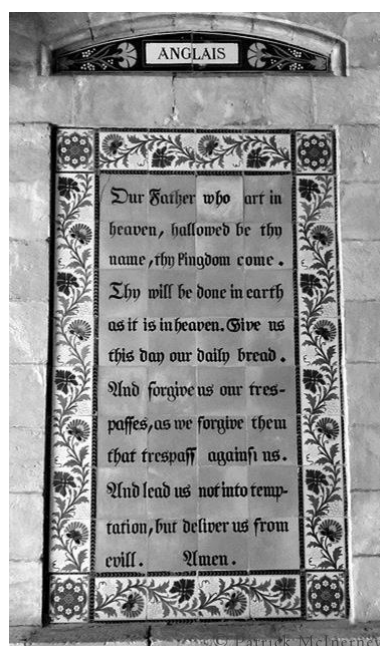 ANGLAIS
Our Father who art in
heaven, hallowed be thy
name, thy Kingdom come.
Thy will be done in earth
as it is in heaven. Give us
this day our daily bread.
And forgive us our tres-
paſſes, as we forgive them
that treſpaſſ againſt us.
And lead us not into temp-
tation, but deliver us from
evill. Amen.
© Patrick McInerney